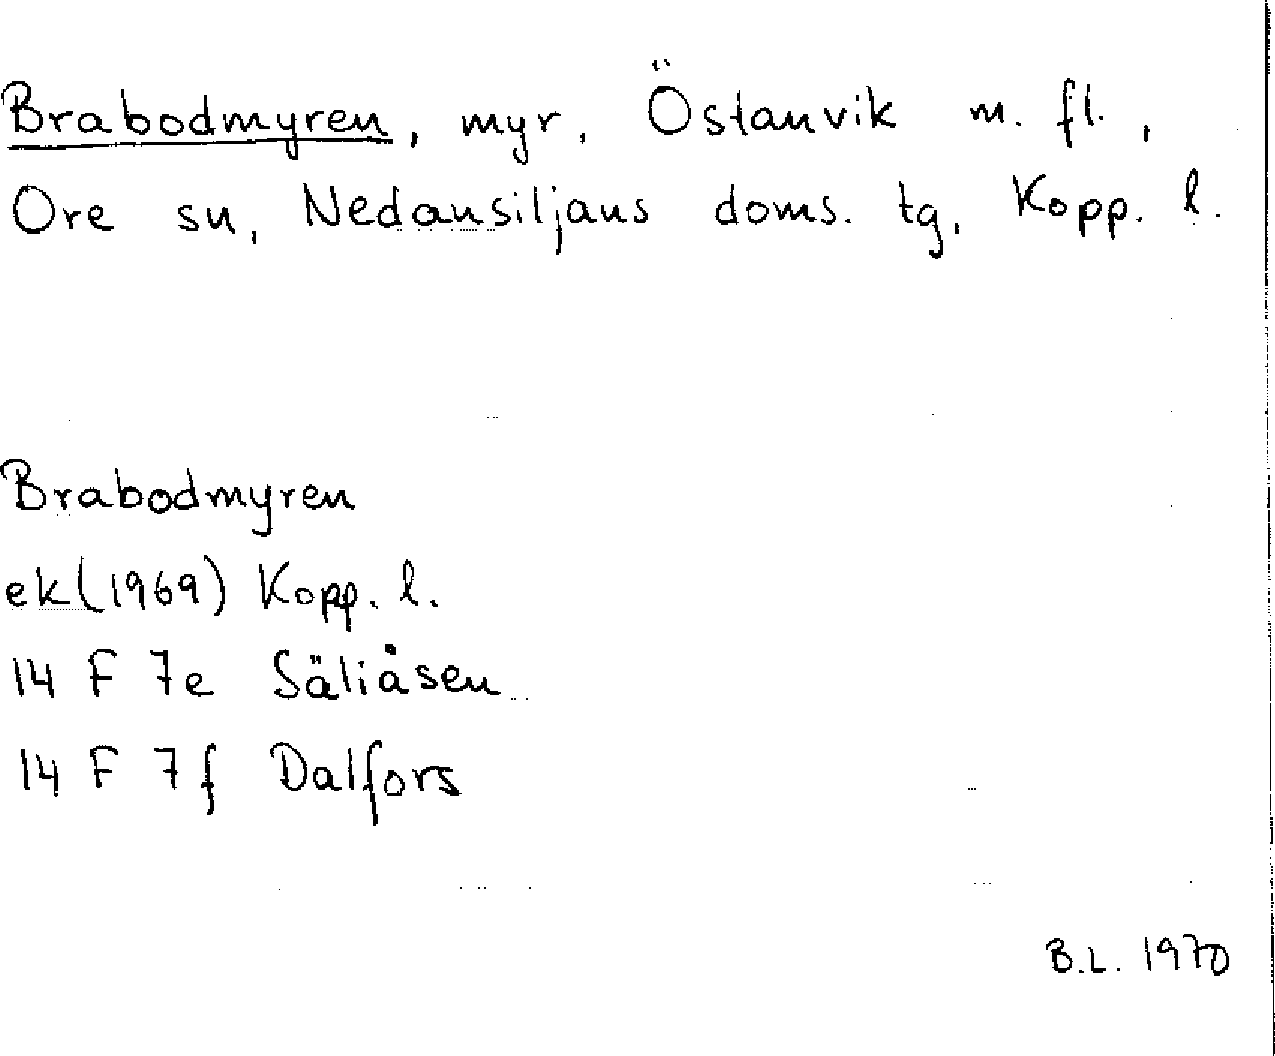 Brabodmyren, myr, Östanvik m. fl.,
Ore sn, Nedansiljans doms. tg, Kopp. l.
Brabodmyren
ek (1969) Kopp. l.
14 F 7e Säliåsen
14 F 7f Dalfors
B.L. 1970